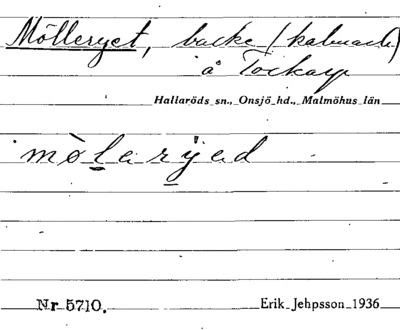 Mölleryet, backe (kalmark)
å Torkarp
Hallaröds sn., Onsjö hd., Malmöhus län
mòlarÿad
Nr 5710.
Erik Jehpsson 1936